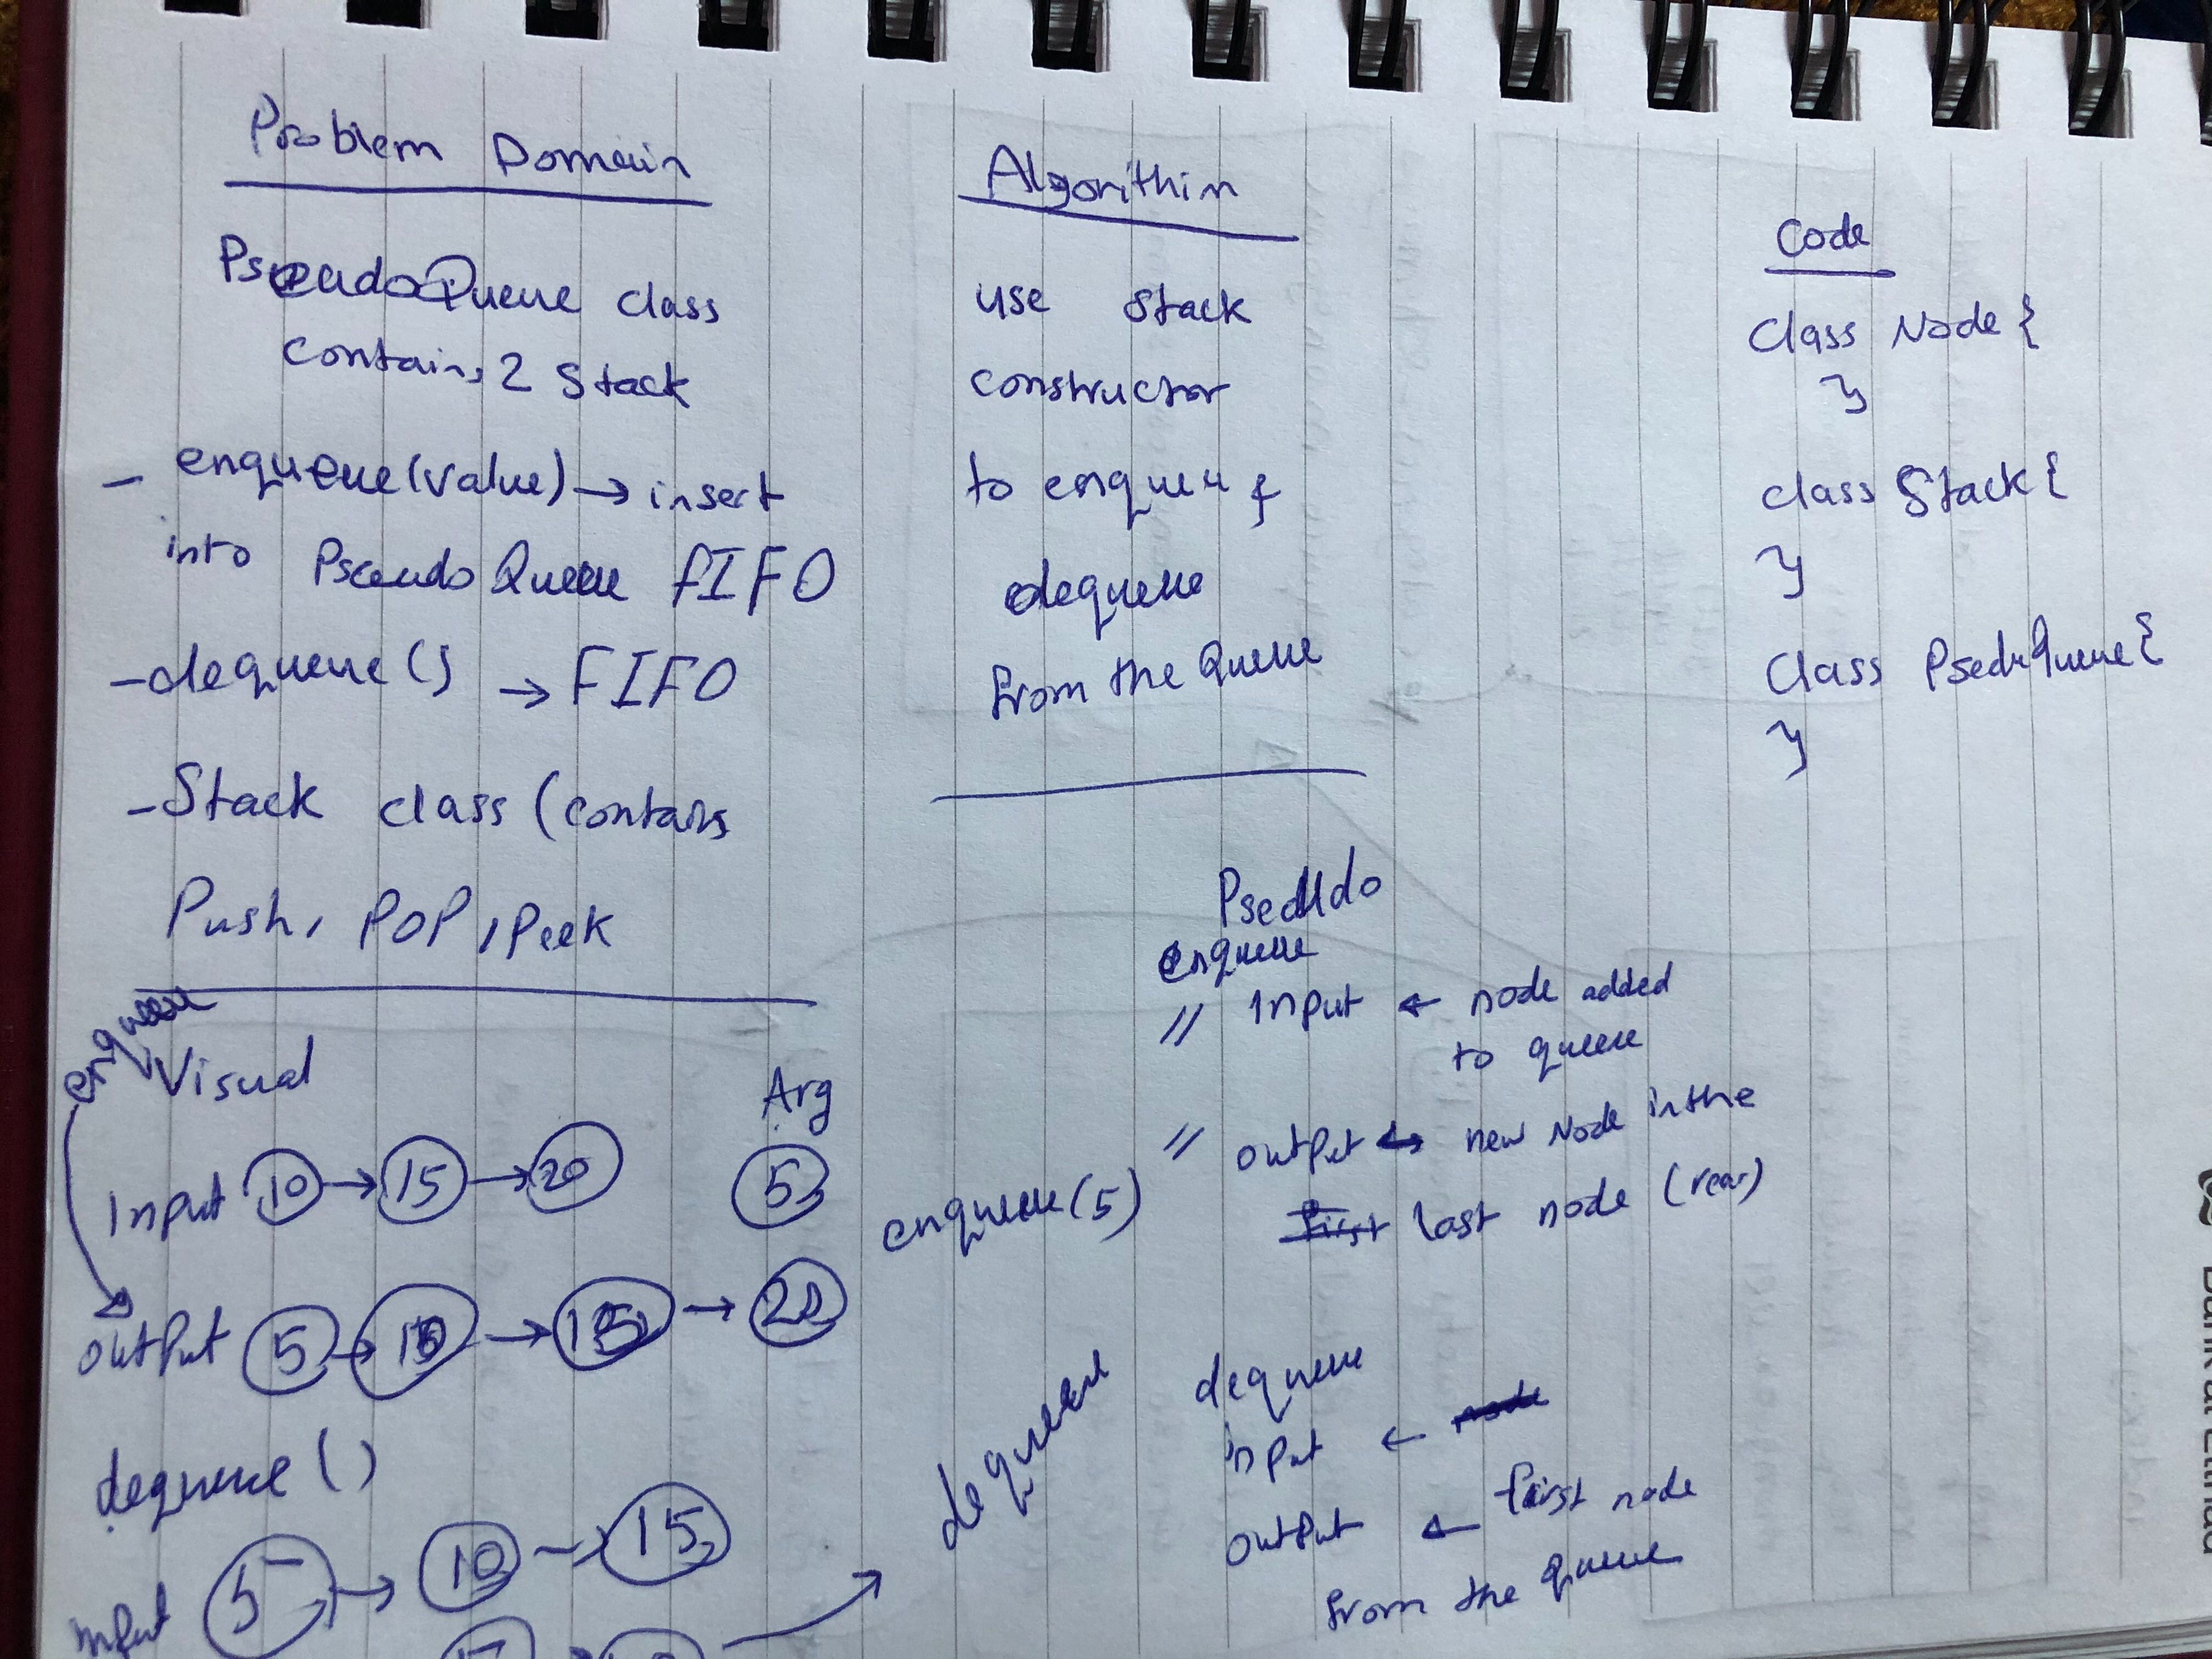 Problem Domain
PseudoQueue class
contains 2 Stack
- enqueue(value) → insert
into PseudoQueue FIFO
- dequeue() → FIFO
- Stack class (contains
Push, POP, Peek
enqueue
Visual
Arg
Input 10 → 15 → 20
5
output 5 → 10 → 15 → 20
dequeue()
Input 5 → 10 → 15
Algorithim
use Stack
constructor
to enqueu &
dequeue
from the Queue
Psedudo
enqueue
// Input ← node added
to queue
enqueue(5)
// output ↔ new Node in the
First last node (rear)
dequeue
dequeue
input ← node
output ← first node
from the queue
Code
Class Node {
}
class Stack {
}
Class PseduQueue {
}